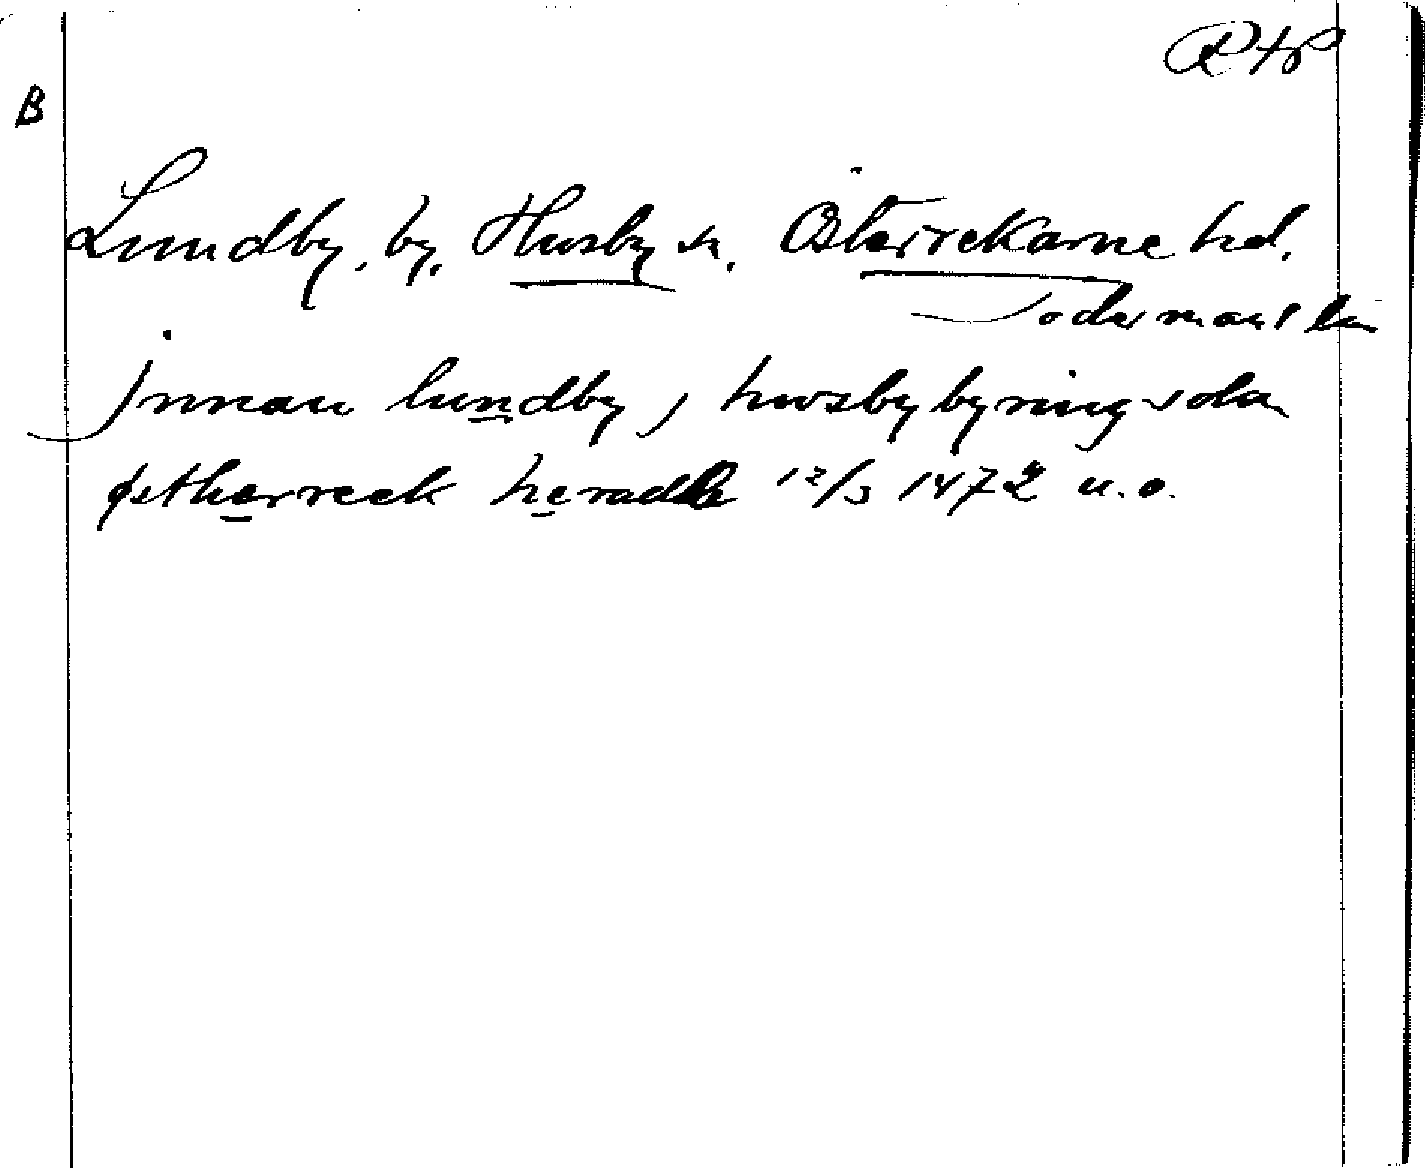 B
Lundby, by, Husby sn, Österrekarne hd.
Södermanl. län
jnnan lundby j husby byrningx sokn
østherreek heradh 12/3 1472 u.o.